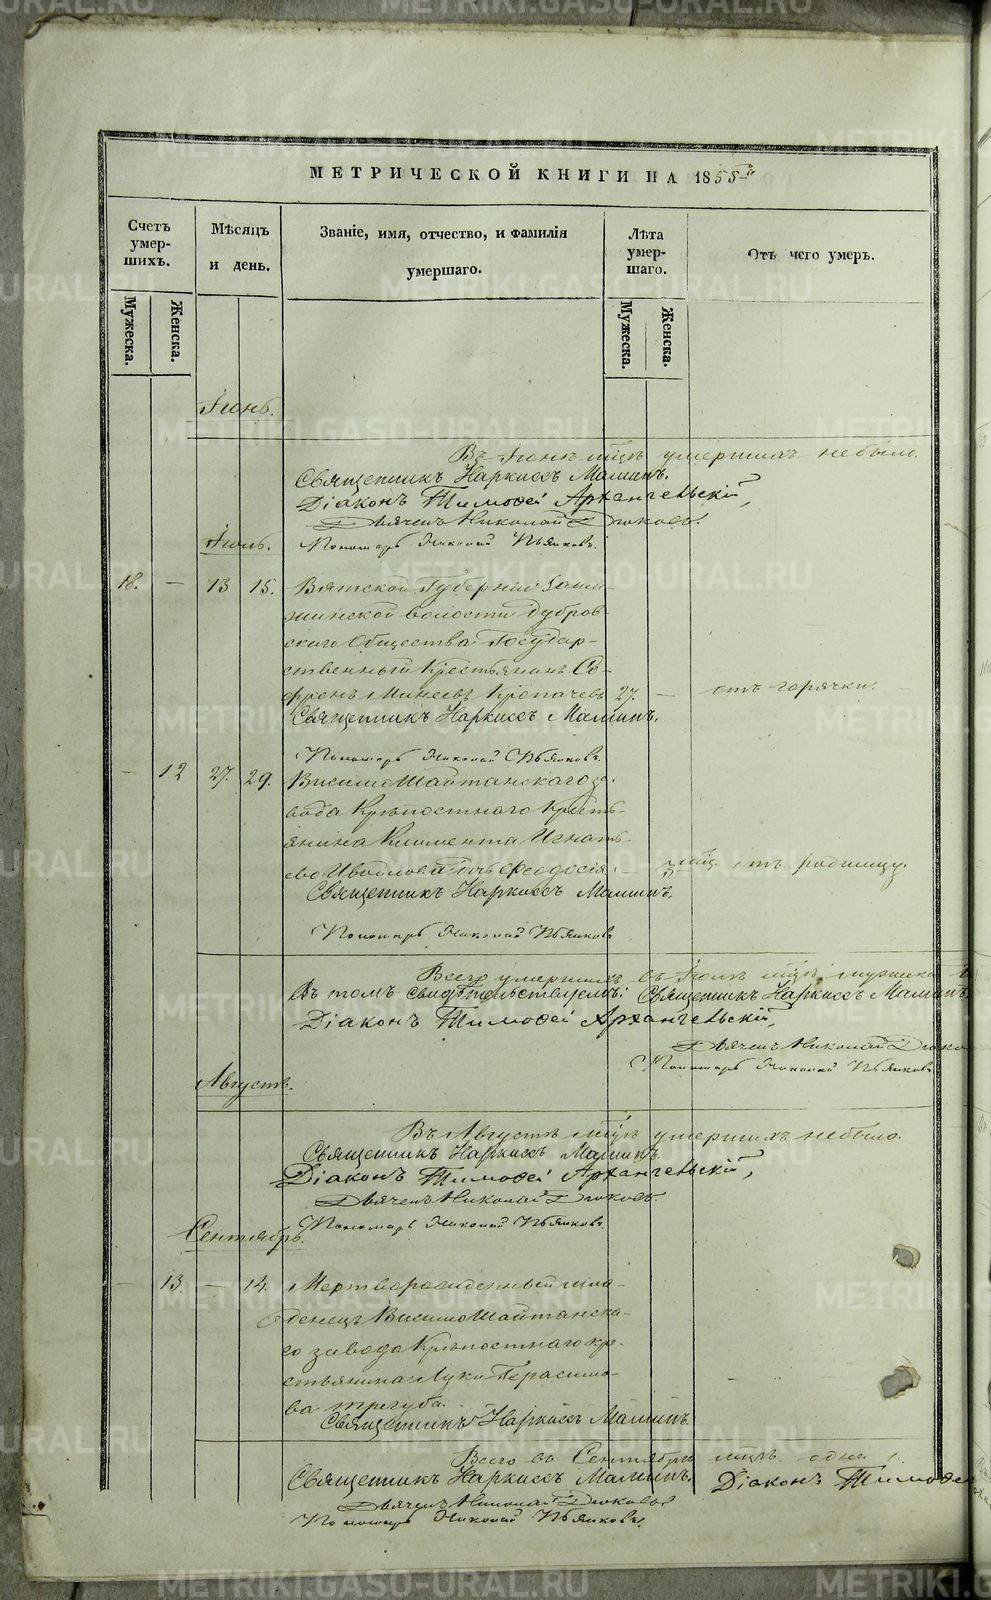 МЕТРИЧЕСКОЙ КНИГИ НА 1855й
Счетъ умер-шихъ.
Мѣсяцъ и день.
Званіе, имя, отчество, и фамилія умершаго.
Лѣта умер-шаго.
Отъ чего умеръ.
Мужеска.
Женска.
Мужеска.
Женска.
Іюнь.
Въ Іюнѣ мцѣ умершихъ не было.
Священникъ Наркиссъ Маминъ.
Діаконъ Тимоѳей Архангельскій,
Дьячекъ Николай Дюковъ.
Іюль.
Пономарь Николай Пьянковъ.
18. — 13 15. Вятской Губерніи
волости Дубров-
скаго Общества Государ-
ственный Крестьянинъ Со-
фронъ Минеевъ Кропачевъ 27. — отъ горячки.
Священникъ Наркиссъ Маминъ.
Пономарь Николай Пьянковъ.
— 12 27. 29. Висимо Шайтанскаго за-
вода Крѣпостнаго Кресть-
янина Климента Игнать-
ева дочь Ѳеодосія. 3 мцъ отъ родимцу.
Священникъ Наркиссъ Маминъ.
Пономарь Николай Пьянковъ
Всего умершихъ въ Іюлѣ мцѣ мужеска 1
Въ томъ свидѣтельствуемъ: Священникъ Наркиссъ Маминъ.
Діаконъ Тимоѳей Архангельскій,
Дьячекъ Николай Дюко
Пономарь Николай Пьянковъ
Августъ.
Въ Августѣ мцѣ умершихъ не было.
Священникъ Наркиссъ Маминъ
Діаконъ Тимоѳей Архангельскій,
Дьячекъ Николай Дюковъ.
Пономарь Николай Пьянковъ.
Сентябрь.
— 13. — 14. Мертворожденный мла-
денецъ Висимо Шайтанска-
го завода Крѣпостнаго кре-
стьянина Луки Герасимо-
ва Трегуба.
Священникъ Наркиссъ Маминъ.
Всего въ Сентябрѣ мцѣ одна 1.
Священникъ Наркиссъ Маминъ. Діаконъ Тимоѳей
Дьячекъ Николай Дюковъ
Пономарь Николай Пьянковъ.
METRIKI.GASO-URAL.RU